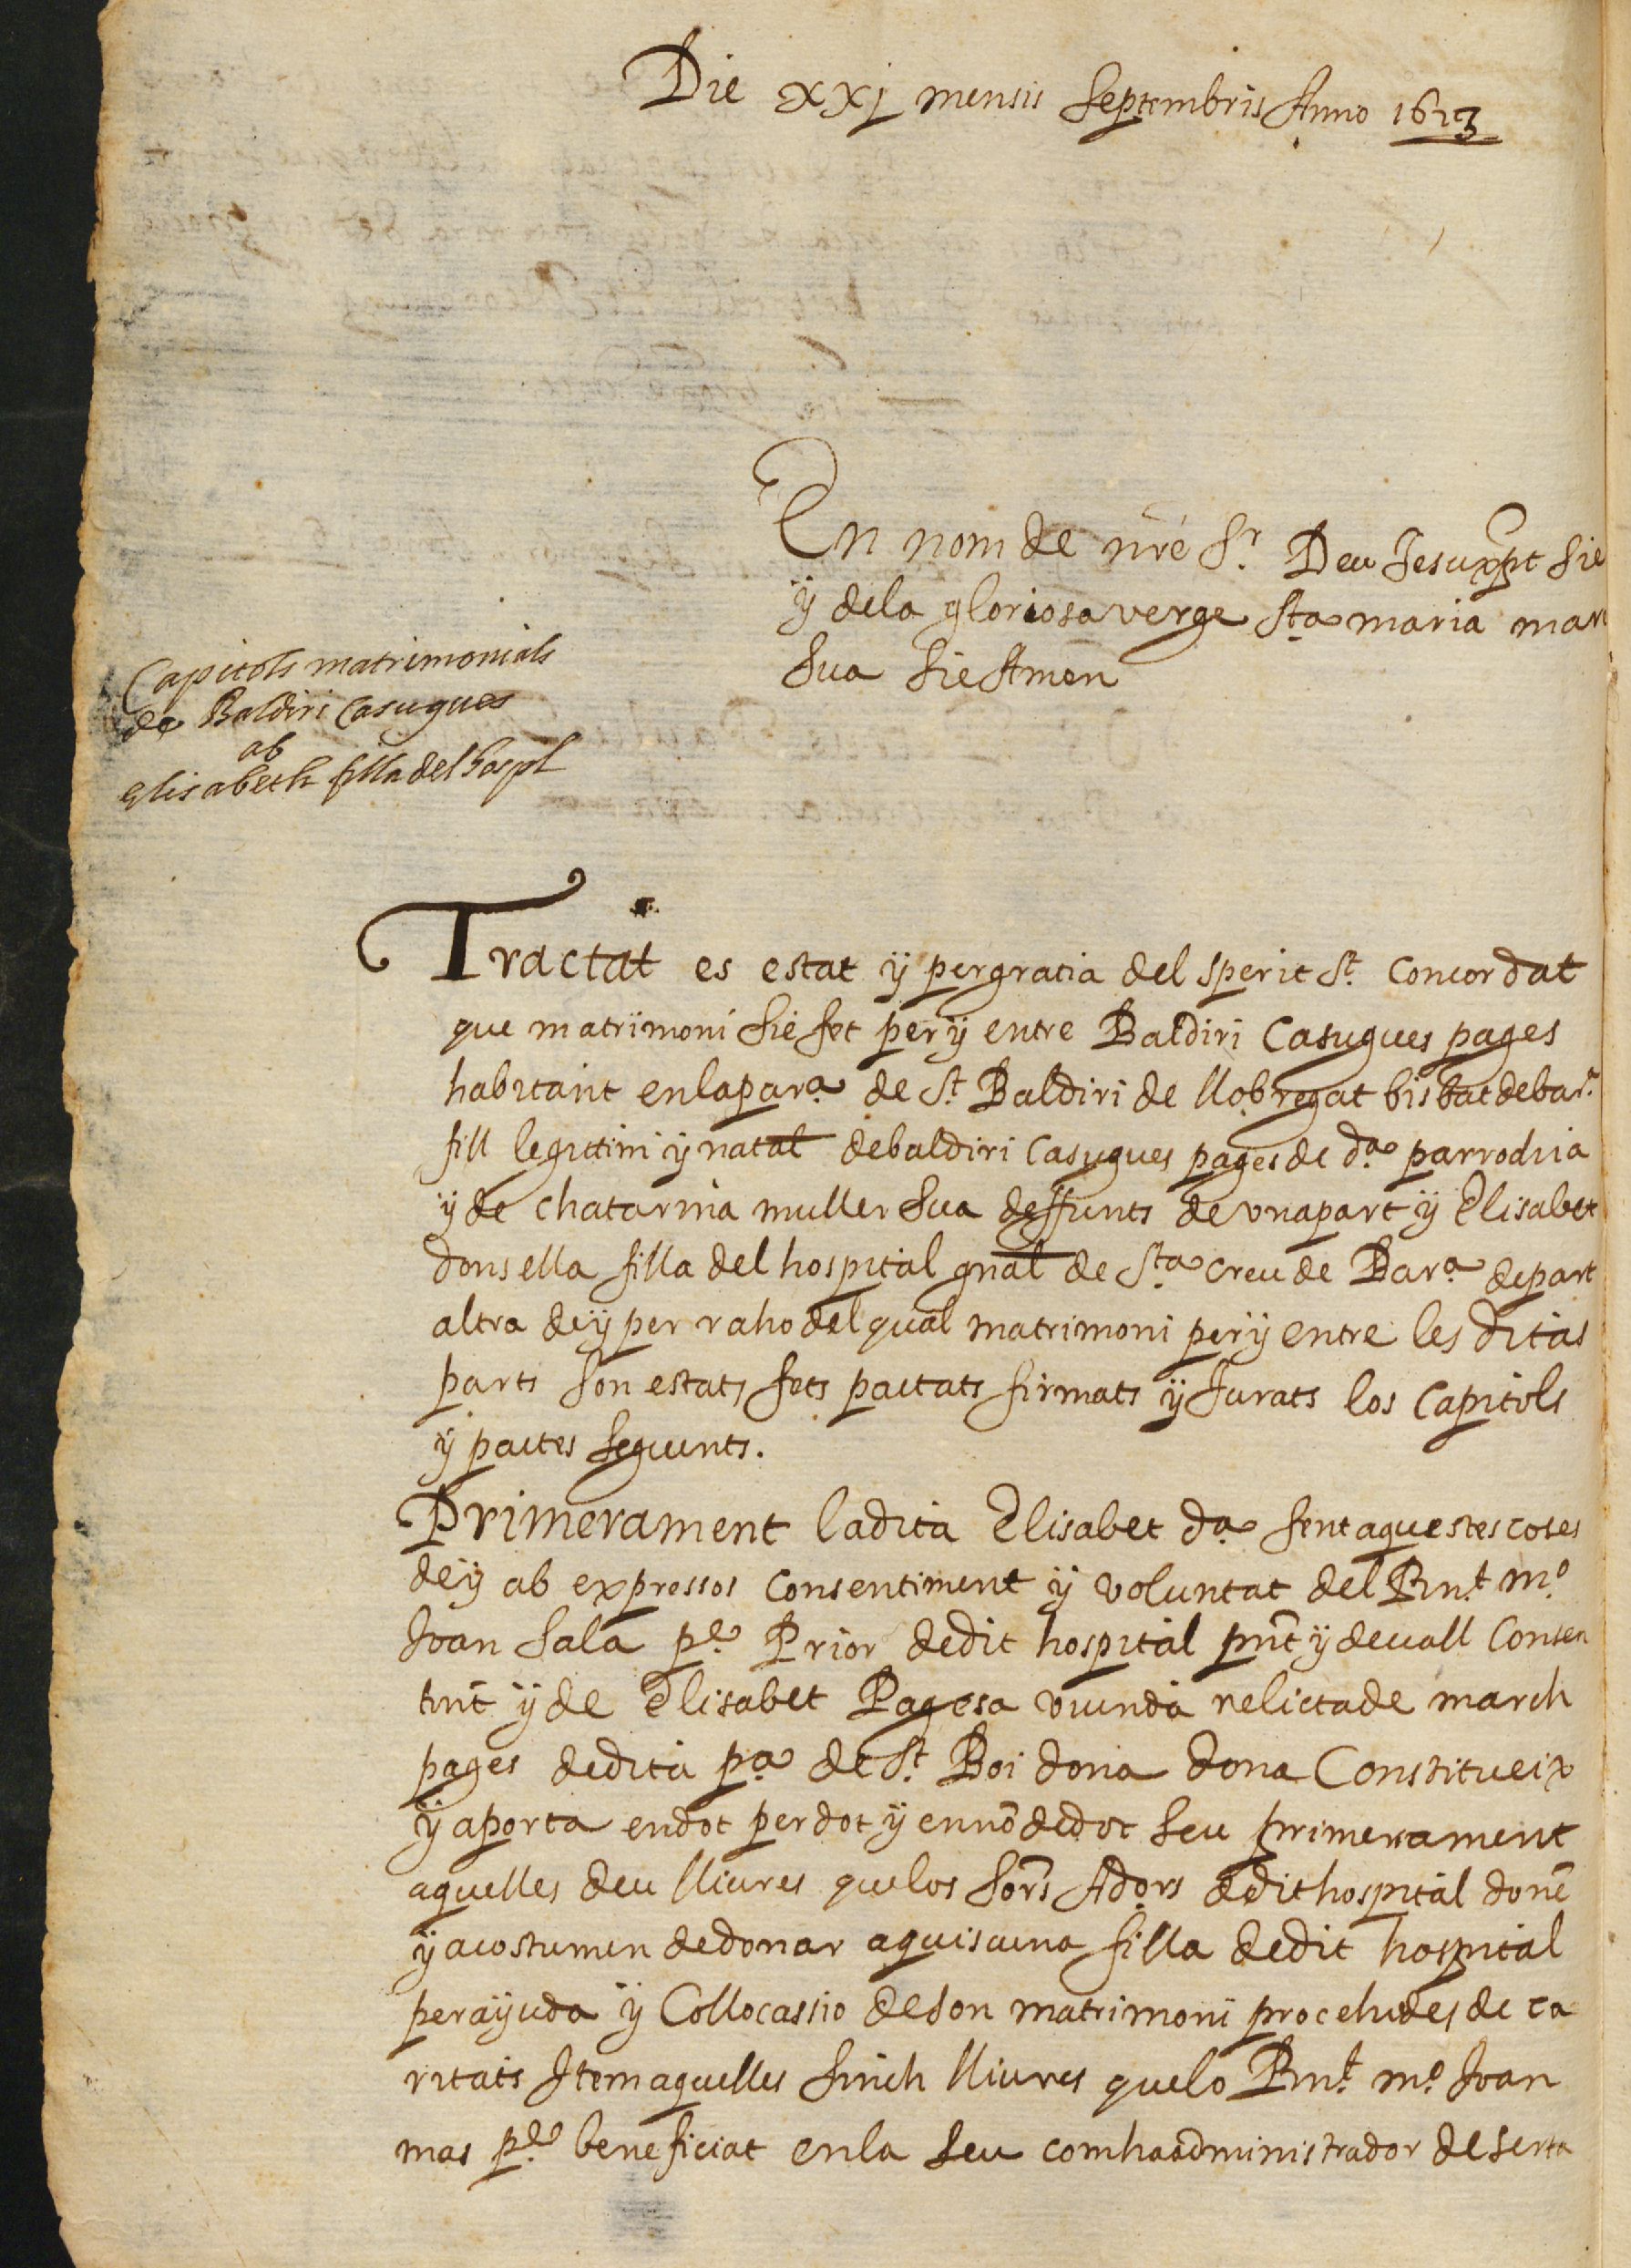 Die xxj mensis Septembris Anno 1623
En nom de nre Sr. Deu Jesuxpt sie
ÿ dela gloriosa verge Sta maria mare
Sua sie Amen
Capitols matrimonials
de Baldiri Casugues
ab
Elisabeth filla del hospl
Tractat es estat ÿ pergratia del sperit St. Concordat
que matrimoni sie fet per ÿ entre Baldiri Casugues pages
habitant enlapara. de St. Baldiri de llobregat bisbat debar.a
fill legittim ÿ natal debaldiri Casugues pages de da. parrochia
ÿ de Chatarina muller Sua deffunts de vnapart ÿ Elisabet
donsella filla del hospital gnal de Sta creu de Bara. depart
altra de ÿ per raho del qual matrimoni per ÿ entre les ditas
parts son estats fets pactats firmats ÿ Jurats los Capitols
ÿ pactes seguents.
Primerament ladita Elisabet da. fent aquestes coses
de ÿ ab expressos Consentiment ÿ voluntat del Rnt. mo.
Joan Sala pe. Prior dedit hospital pnt ÿ devall Consen
tint ÿ de Elisabet Pagesa viuuda relicta de march
pages dedita pa. de St. Boi dona dona Constitueix
ÿ aporta endot perdot ÿ en nõ dedot seu primerament
aquelles deu lliures quelos Sors Adors dedit hospital donẽ
ÿ acostumen dedonar aquiscuna filla dedit hospital
perayuda ÿ Collocassio deson matrimoni procehides de ca
ritats Item aquelles sinch lliures quelo Rnt. mo. Joan
mas pe. beneficiat enla Seu comha administrador de serta